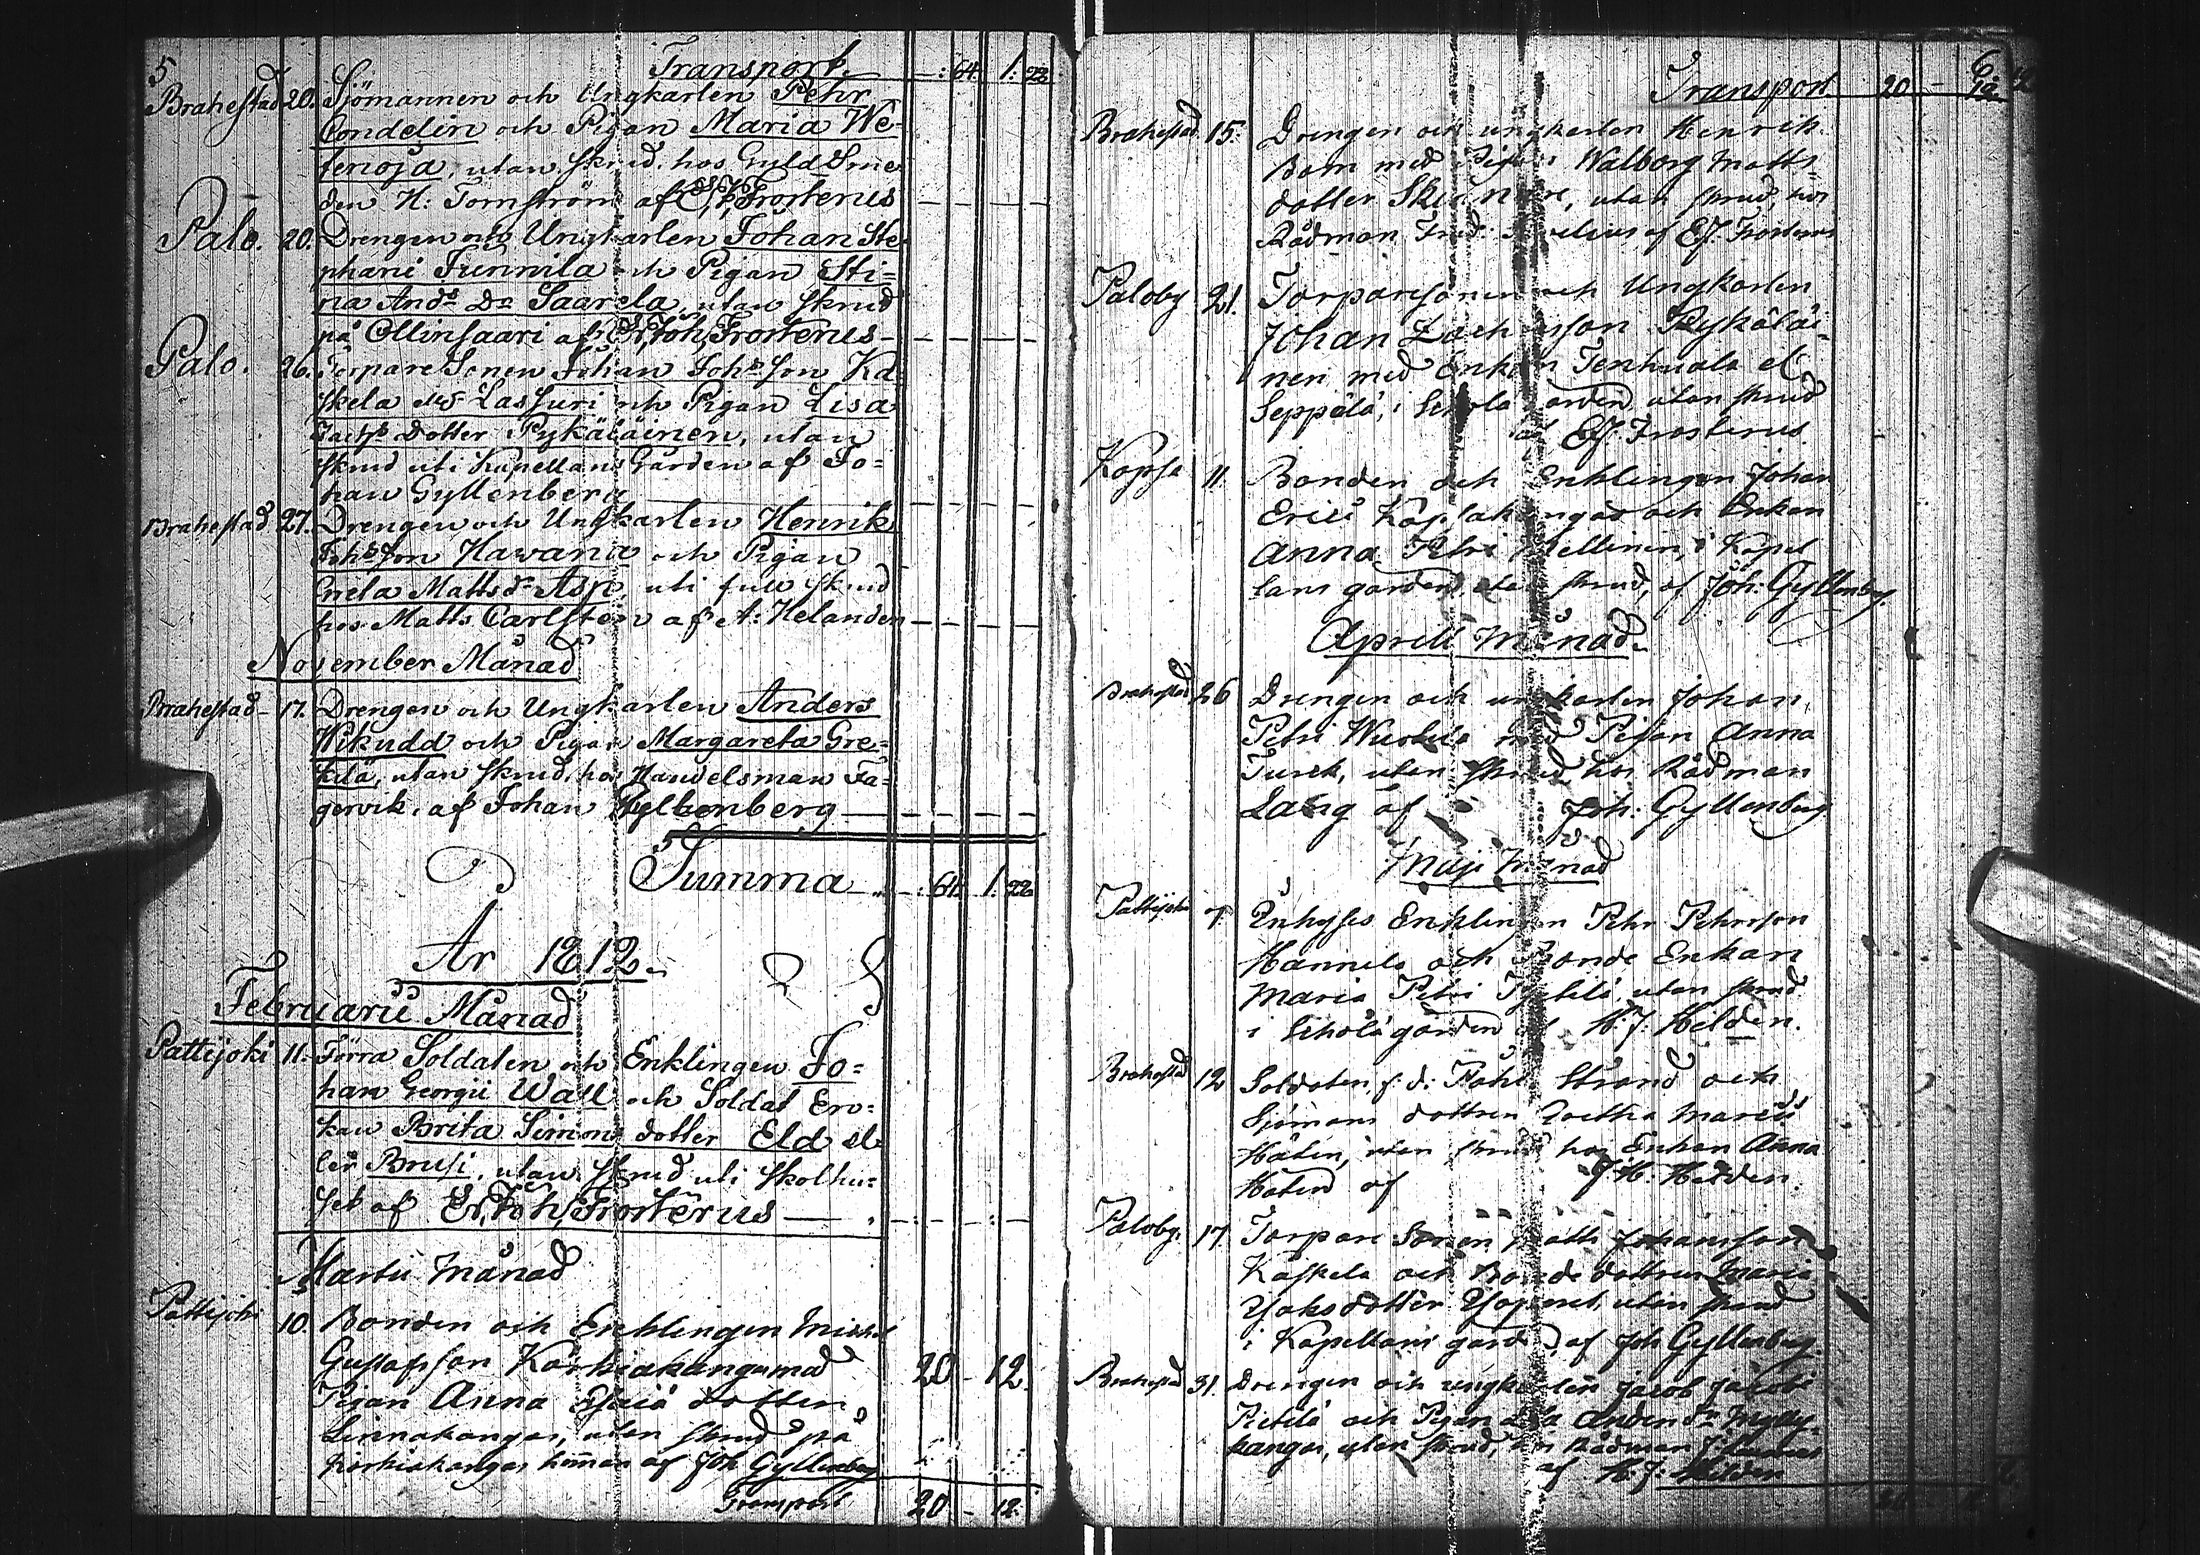 5
Transport — : 64. 1. 22
Brahestad 20. Sjömannen och Ungkarlen Pehr
Condelin och Pigan Maria We-
tenoja, utan skrud, hos Gyld Sme
den H: Tornström af Er. Joh. Frosterus — — —
Palo. 20. Drengen och Ungkarlen Johan Ste-
phani Junnila och Pigan Sti=
na Ands Dr Saarela, utan skrud
på Ollinsaari af Er. Joh. Frosterus — — —
Palo. 26. Torpare Sonen Johan Johsson Ka
skela och Pigan Lisa
dotter Pykäläinen, utan
skrud uti Kapellans Gården af Jo=
han Gyllenberg — — —
Brahestad 27. Drengen och Ungkarlen Henrik
Johsson Hawana och Pigan
Greta Matts dr Asp, uti full skrud
hos Matts Carlsten af A: Helander — — —
November Månad
Brahestad 17. Drengen och Ungkarlen Anders
Wikudd och Pigan Margareta Gre=
kilä, utan skrud, hos Handelsman Fa=
gervik, af Johan Gyllenberg — — —
Summa — : 64. 1. 22
År 1812.
Februarii Månad
Pattijoki 11. Förra Soldaten och Enklingen Jo=
han Georgii Wall och Soldat En=
kan Brita Simons dotter Eld el
ler Brusi, utan skrud uti Skolhu=
set af Er. Joh. Frosterus — — —
Martii Månad
Pattijoki 10. Bonden och Enklingen Michel
Gustafsson Karhiakangas med 20 - 12.
Pigan Anna Esaiä dotter
Linnakangas, utan skrud på
Karhiakangas hemman af Joh Gyllenberg
Transport 20 - 12.
6
Transport 20 - 12
Brahestad 15. Drengen och ungkarlen Henrik
Bom med Pigan Walborg Matts
dotter, utan skrud, hos
Rådman af E. J. Frosterus
Paloby 21. Torparesonen och Ungkarlen
Johan Zachrisson Pykäläi-
nen med Enkan Tenhuala el
Seppälä, i Schola gården utan skrud
af E. J. Frosterus
Kopsa 11. Bonden och Enklingen Johan
Erici Kopsakangas och Enkan
Anna Petri Mellinen, i Kapel
lans gården utan skrud, af Joh: Gyllenberg.
Aprill Månad
Brahestad 26 Drengen och ungkarlen Johan
Petri med Pigan Anna
Turck, utan skrud hos Rådman
Lang af Joh: Gyllenberg
Maji Månad
Pattijoki 7. Inhyses Enklingen Pehr Pehrsson
Hannila och Bonde Enkan
Maria Petri, utan skrud
i Scholägården af H: J: Helden.
Brahestad 12 Soldaten f: d: Påhl Strand och
Sjömans dottren Gretha Maria
Håtin, utan skrud hos Enkan Anna
Håtin af J H: Helden.
Paloby. 17. Torpare Sonen Matts Johansson
Kaskela och Bonde dottren Maria
Jakobsdotter, utan skrud
i Kapellans gården, af Joh Gyllenberg
Brahestad 31. Drengen och ungkarlen Jacob Jacobi
Pietilä och Pigan Anders dr Mylly
kangas, utan skrud, hos Rådman J:
af H: J: Helden